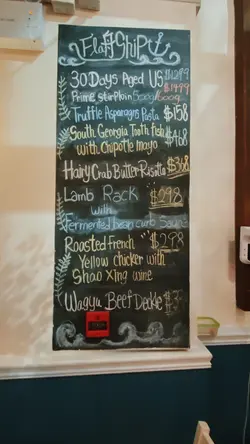 FlagShip
30 Days Aged US $1299
Prime striploin 500g/600g $1499
Truffle Asparagus Pasta $158
South Georgia Tooth fish $468
with Chipotle mayo
Hairy Crab Butter Risotto $368
Lamb Rack $298
with
Fermented bean curb Sauce
Roasted French $298
Yellow chicken with
Shao Xing wine
Wagyu Beef Deckle